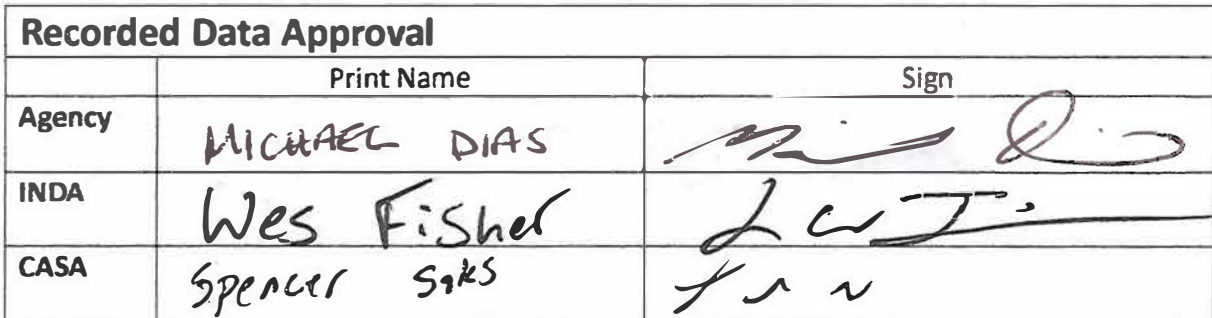 Recorded Data Approval
Print Name Sign
Agency MICHAEL DIAS
INDA Wes Fisher
CASA Spencer Saks